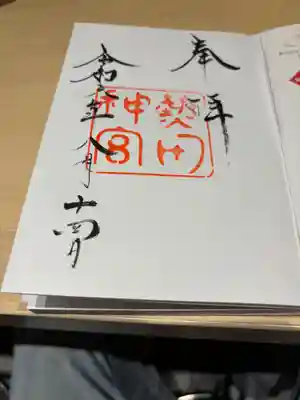 奉拝
熱田
神宮
令和六年八月十四日